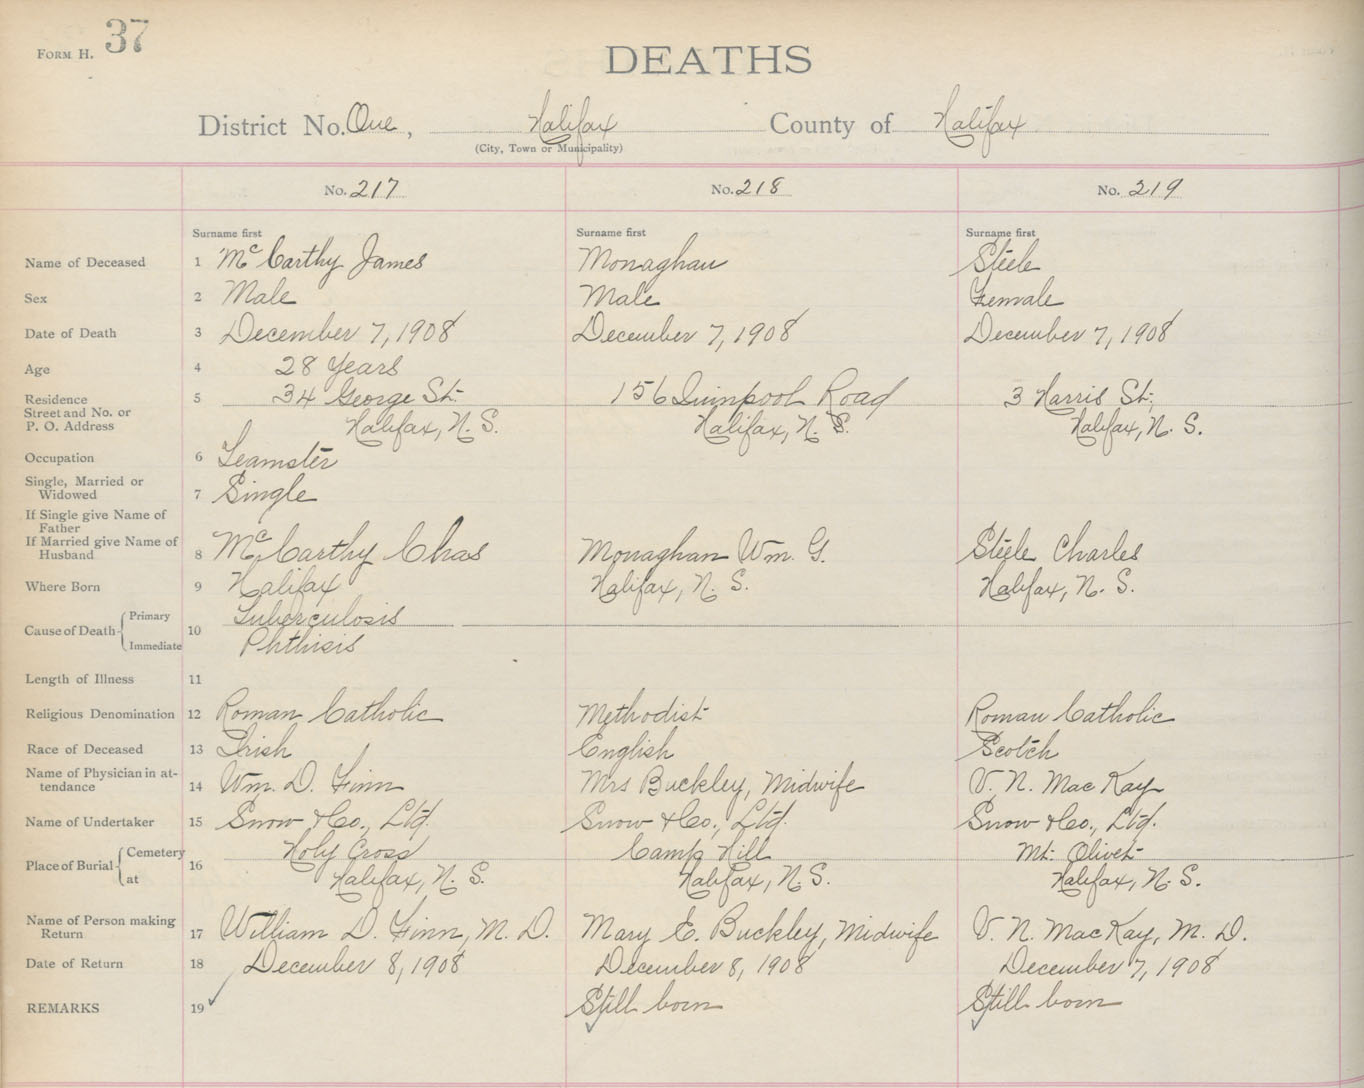 FORM H. 37
DEATHS
District No. One, Halifax County of Halifax
(City, Town or Municipality)
No. 217 No. 218 No. 219
Surname first Surname first Surname first
Name of Deceased 1 McCarthy James Monaghan Steele
Sex 2 Male Male Female
Date of Death 3 December 7, 1908 December 7, 1908 December 7, 1908
Age 4 28 Years
Residence 5 34 George St. 156 Quinpool Road 3 Harris St.
Street and No. or
P. O. Address Halifax, N. S. Halifax, N. S. Halifax, N. S.
Occupation 6 Teamster
Single, Married or
Widowed 7 Single
If Single give Name of
Father
If Married give Name of
Husband 8 McCarthy Chas Monaghan Wm. G. Steele Charles
Where Born 9 Halifax Halifax, N. S. Halifax, N. S.
Cause of Death Primary 10 Tuberculosis
Immediate Phthisis
Length of Illness 11
Religious Denomination 12 Roman Catholic Methodist Roman Catholic
Race of Deceased 13 Irish English Scotch
Name of Physician in at-
tendance 14 Wm. D. Finn Mrs Buckley, Midwife V. N. MacKay
Name of Undertaker 15 Snow & Co., Ltd. Snow & Co., Ltd. Snow & Co., Ltd.
Place of Burial Cemetery 16 Holy Cross Camp Hill Mt. Olivet
at Halifax, N. S. Halifax, N. S. Halifax, N. S.
Name of Person making
Return 17 William D. Finn, M. D. Mary E. Buckley, Midwife V. N. MacKay, M. D.
Date of Return 18 December 8, 1908 December 8, 1908 December 7, 1908
REMARKS 19 Still born Still born